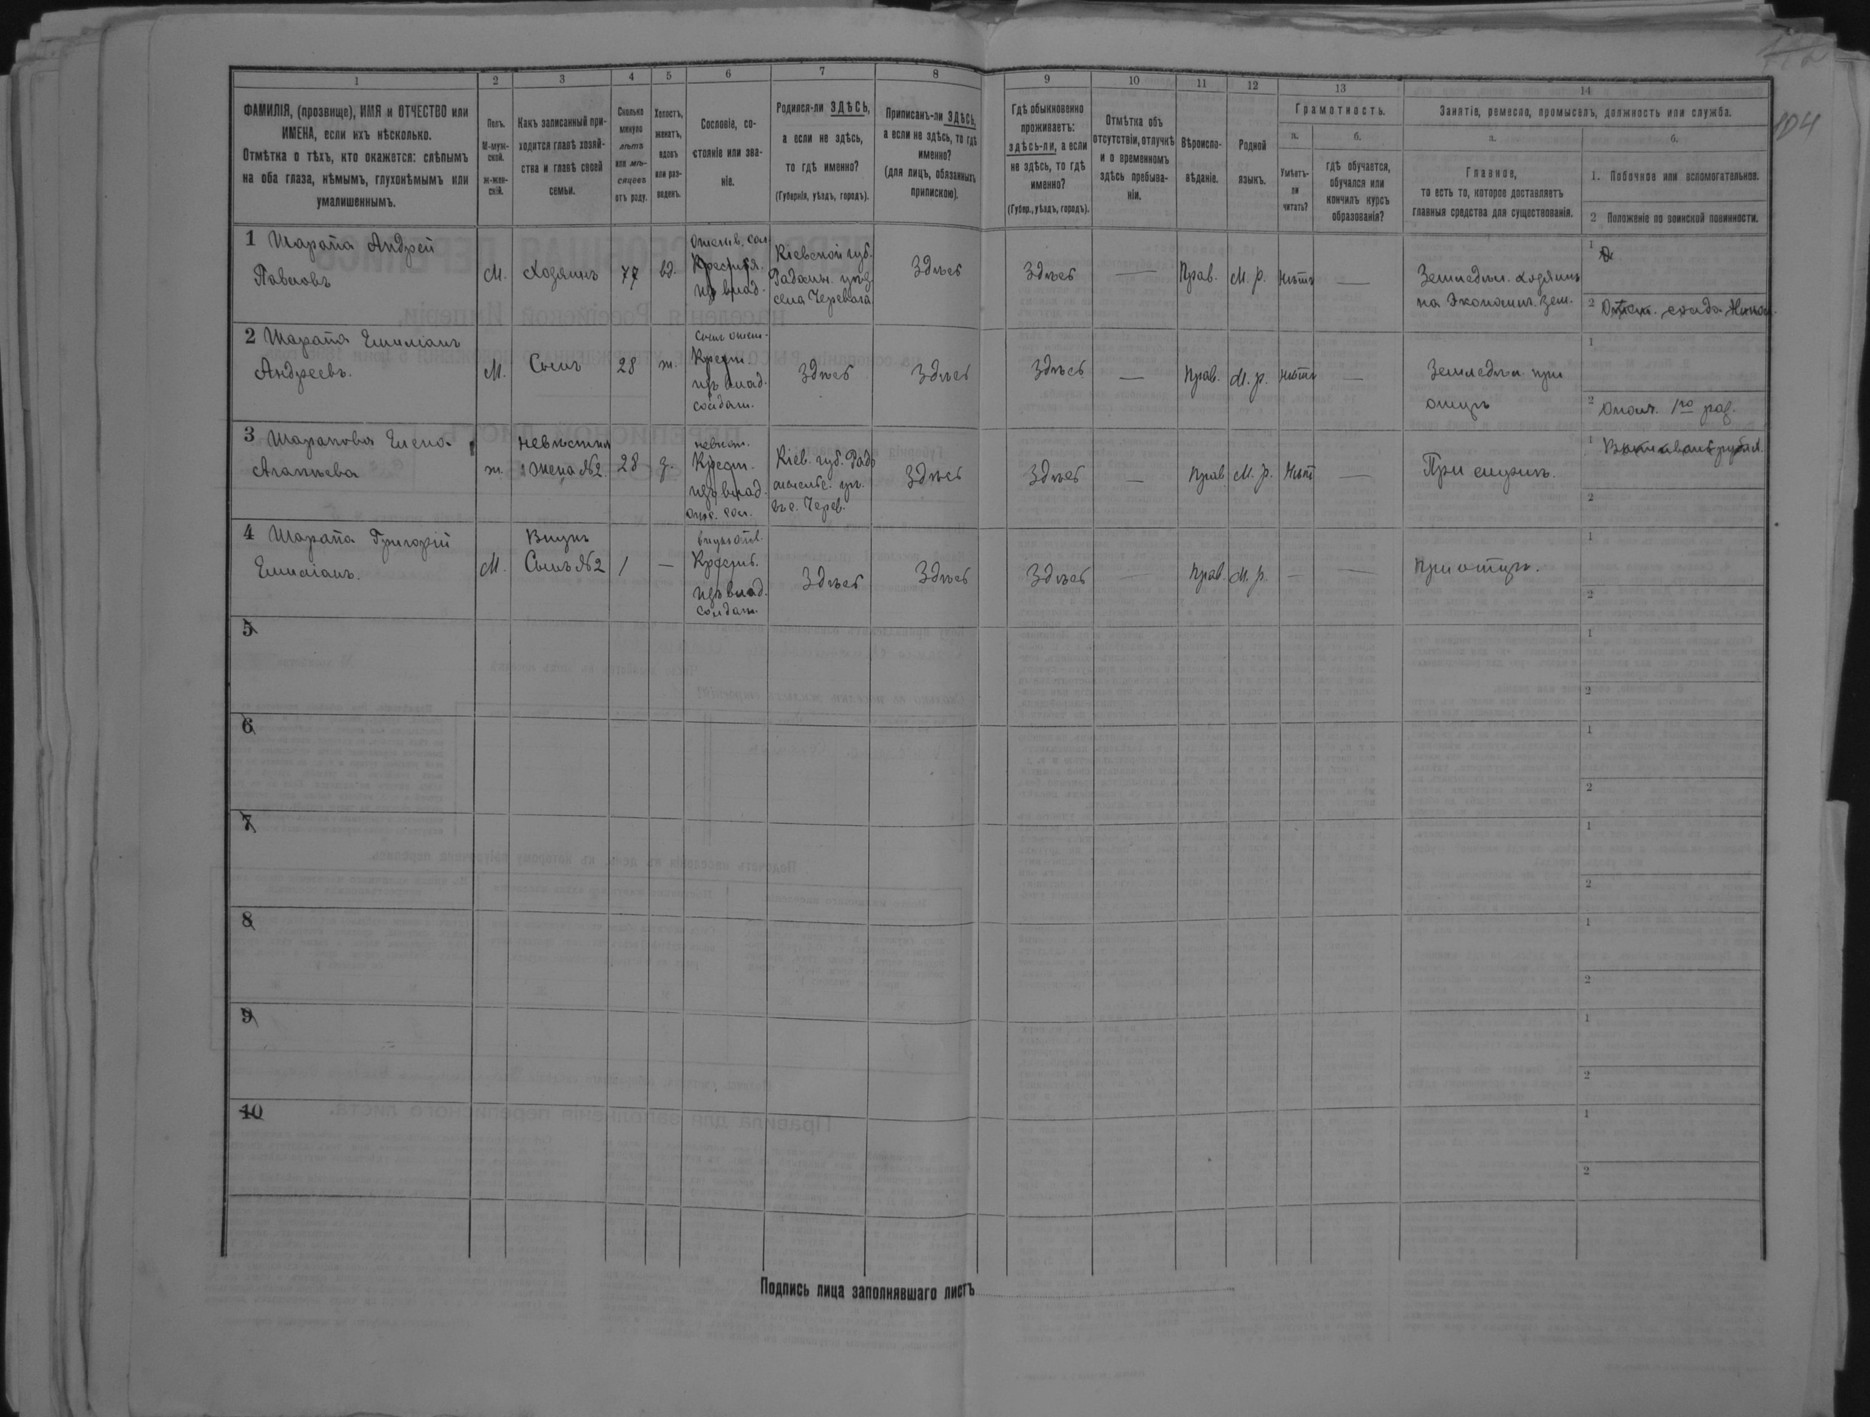 104
1
2
3
4
5
6
7
8
9
10
11
12
13
14
ФАМИЛІЯ, (прозвище), ИМЯ и ОТЧЕСТВО или
ИМЕНА, если ихъ нѣсколько.
Отмѣтка о тѣхъ, кто окажется: слѣпымъ
на оба глаза, нѣмымъ, глухонѣмымъ или
умалишеннымъ.
Полъ.
М-муж-
ской.
ж-жен-
скій.
Какъ записанный при-
ходится главѣ хозяй-
ства и главѣ своей
семьи.
Сколько
минуло
лѣтъ
или мѣ-
сяцевъ
отъ роду.
Холостъ,
женатъ,
вдовъ
или раз-
веденъ.
Сословіе, со-
стояніе или зва-
ніе.
Родился-ли ЗДѢСЬ,
а если не здѣсь,
то гдѣ именно?
(Губернія, уѣздъ, городъ).
Приписанъ-ли ЗДѢСЬ,
а если не здѣсь, то гдѣ
именно?
(для лицъ, обязанныхъ
припискою).
Гдѣ обыкновенно
проживаетъ:
здѣсь-ли, а если
не здѣсь, то гдѣ
именно?
(Губер., уѣздъ, городъ).
Отмѣтка объ
отсутствіи, отлучкѣ
и о временномъ
здѣсь пребыва-
ніи.
Вѣроиспо-
вѣданіе.
Родной
языкъ.
Грамотность.
а.
Умѣетъ-
ли
читать?
б.
гдѣ обучается,
обучался или
кончилъ курсъ
образованія?
Занятіе, ремесло, промыселъ, должность или служба.
а.
Главное,
то есть то, которое доставляетъ
главныя средства для существованія.
б.
1. Побочное или вспомогательное.
2 Положеніе по воинской повинности.
1 Шарапа Андрей
Павловъ
М.
Хозяинъ
77
вд.
Крестья.
из влад.
Кіевской губ.
Радомы. уѣзд
села Черевача
Здѣсь
Здѣсь
—
Прав.
М. р.
Нѣтъ
—
Земледѣл. хозяинъ
на Экономич. Зем.
1
2
2 Шарапа Емиліанъ
Андреевъ.
М.
Сынъ
28
ж.
Крест.
изъ влад.
солдат.
Здѣсь
Здѣсь
Здѣсь
—
Прав.
М. р.
Нѣтъ
—
Земледѣл при
отцѣ
1
2 Ополч. 1го раз.
3 Шарапова Елена
Агапіева
ж.
невѣстка
Жена №2
28
з.
невѣст.
Крест.
изъ влад.
Кіев. губ. Радо
мысльс. уѣ.
въ с. Черев.
Здѣсь
Здѣсь
—
Прав
М. р.
Нѣт
—
При мужѣ.
1
2
4 Шарапа Григорій
Емиліанъ.
М.
Внукъ
Сынъ №2
1
—
Крест.
изъ влад.
солдат.
Здѣсь
Здѣсь
Здѣсь
—
Прав.
М. р.
—
—
При отцѣ.
1
2
5
1
2
6
1
2
7
1
2
8
1
2
9
1
2
10
1
2
Подпись лица заполнявшаго листъ